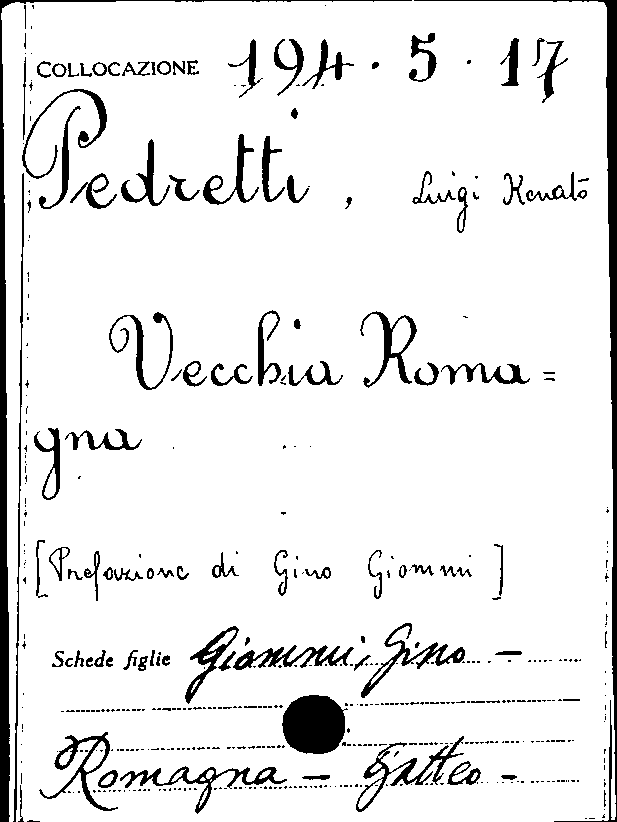 COLLOCAZIONE 194 · 5 · 17
Pedretti, Luigi Renato
Vecchia Roma=
gna
[Prefazione di Gino Giommi]
Schede figlie Giommi, Gino -
Romagna - Gatteo -